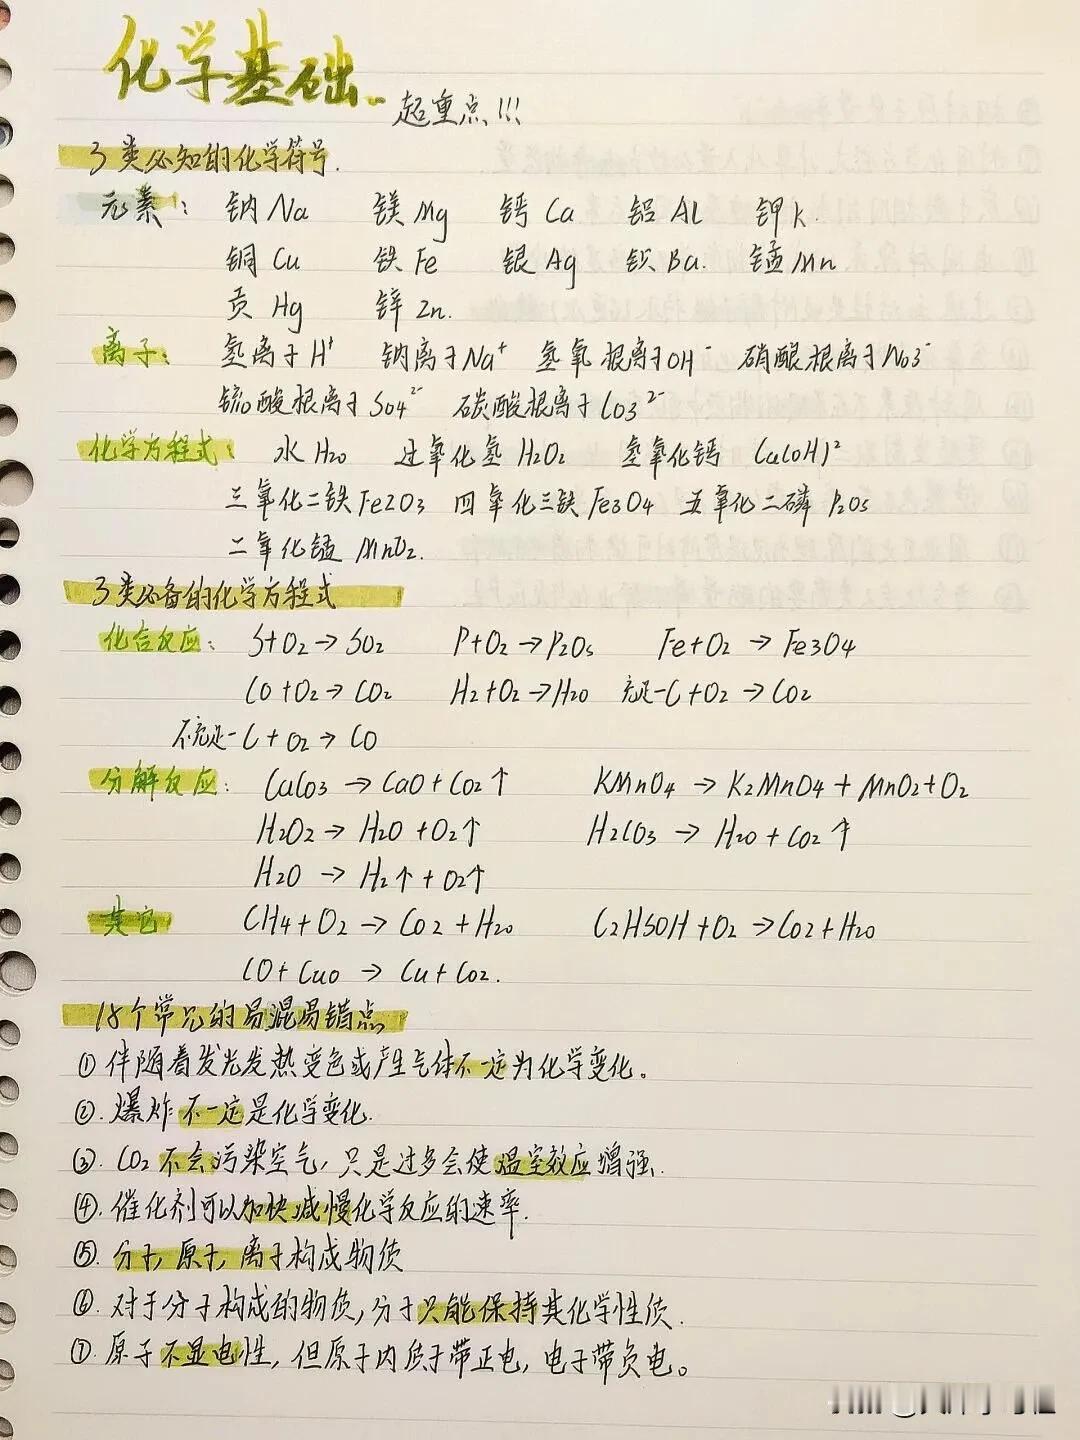 化学基础
超重点!!!
3类必知的化学符号.
元素: 钠Na 镁Mg 钙Ca 铝AL 钾K.
铜Cu 铁Fe 银Ag 钡Ba. 锰Mn
贡Hg 锌Zn.
离子: 氢离子H⁺ 钠离子Na⁺ 氢氧根离子OH⁻ 硝酸根离子NO3⁻
硫酸根离子SO4²⁻ 碳酸根离子CO3²⁻
化学方程式: 水H2O 过氧化氢H2O2 氢氧化钙Ca(OH)²
三氧化二铁Fe2O3 四氧化三铁Fe3O4 五氧化二磷P2O5
二氧化锰MnO2.
3类必备的化学方程式
化合反应: S+O2→SO2 P+O2→P2O5 Fe+O2→Fe3O4
CO+O2→CO2 H2+O2→H2O 充足-C+O2→CO2
不充足-C+O2→CO
分解反应: CaCO3→CaO+CO2↑ KMnO4→K2MnO4+MnO2+O2
H2O2→H2O+O2↑ H2CO3→H2O+CO2↑
H2O→H2↑+O2↑
其它 CH4+O2→CO2+H2O C2H5OH+O2→CO2+H2O
CO+CuO→Cu+CO2.
18个常见的易混易错点
①伴随着发光发热变色或产生气体不一定为化学变化。
②.爆炸不一定是化学变化.
③.CO2不会污染空气,只是过多会使温室效应增强.
④.催化剂可以加快减慢化学反应的速率.
⑤.分子,原子,离子构成物质
⑥.对于分子构成的物质,分子只能保持其化学性质.
⑦.原子不显电性,但原子内质子带正电,电子带负电。